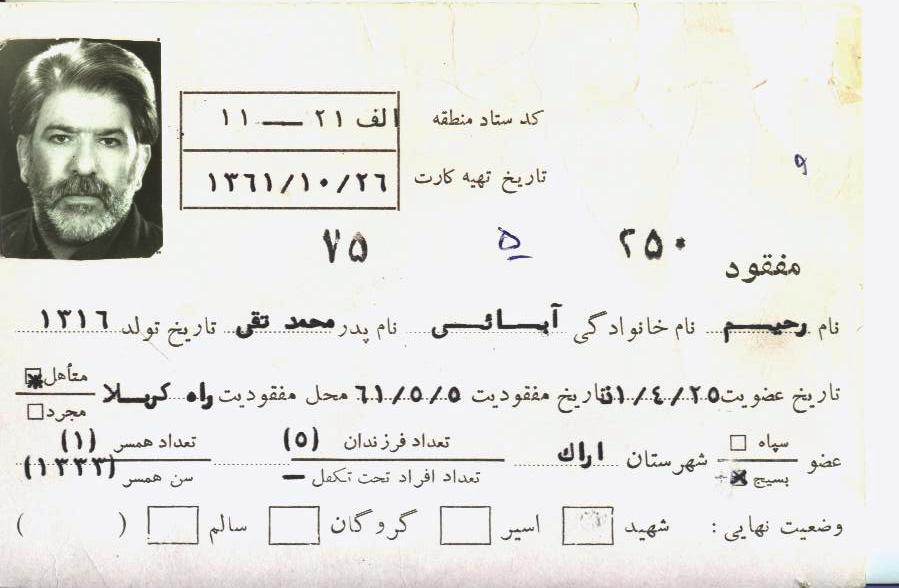 کد ستاد منطقه الف ۲۱ — ۱۱
تاریخ تهیه کارت ۱۳۶۱/۱۰/۲۶
۲۵۰ ۵ ۷۵
مفقود
نام رحیم نام خانوادگی آبائی نام پدر محمد تقی تاریخ تولد ۱۳۱۶
تاریخ عضویت ۶۱/۴/۲۵ تاریخ مفقودیت ۶۱/۵/۵ محل مفقودیت راه کربلا متأهل
مجرد
عضو سپاه شهرستان اراک تعداد فرزندان (۵) تعداد همسر (۱)
بسیج تعداد افراد تحت تکفل — سن همسر (۱۳۳۳)
وضعیت نهایی: شهید اسیر گروگان سالم ( )